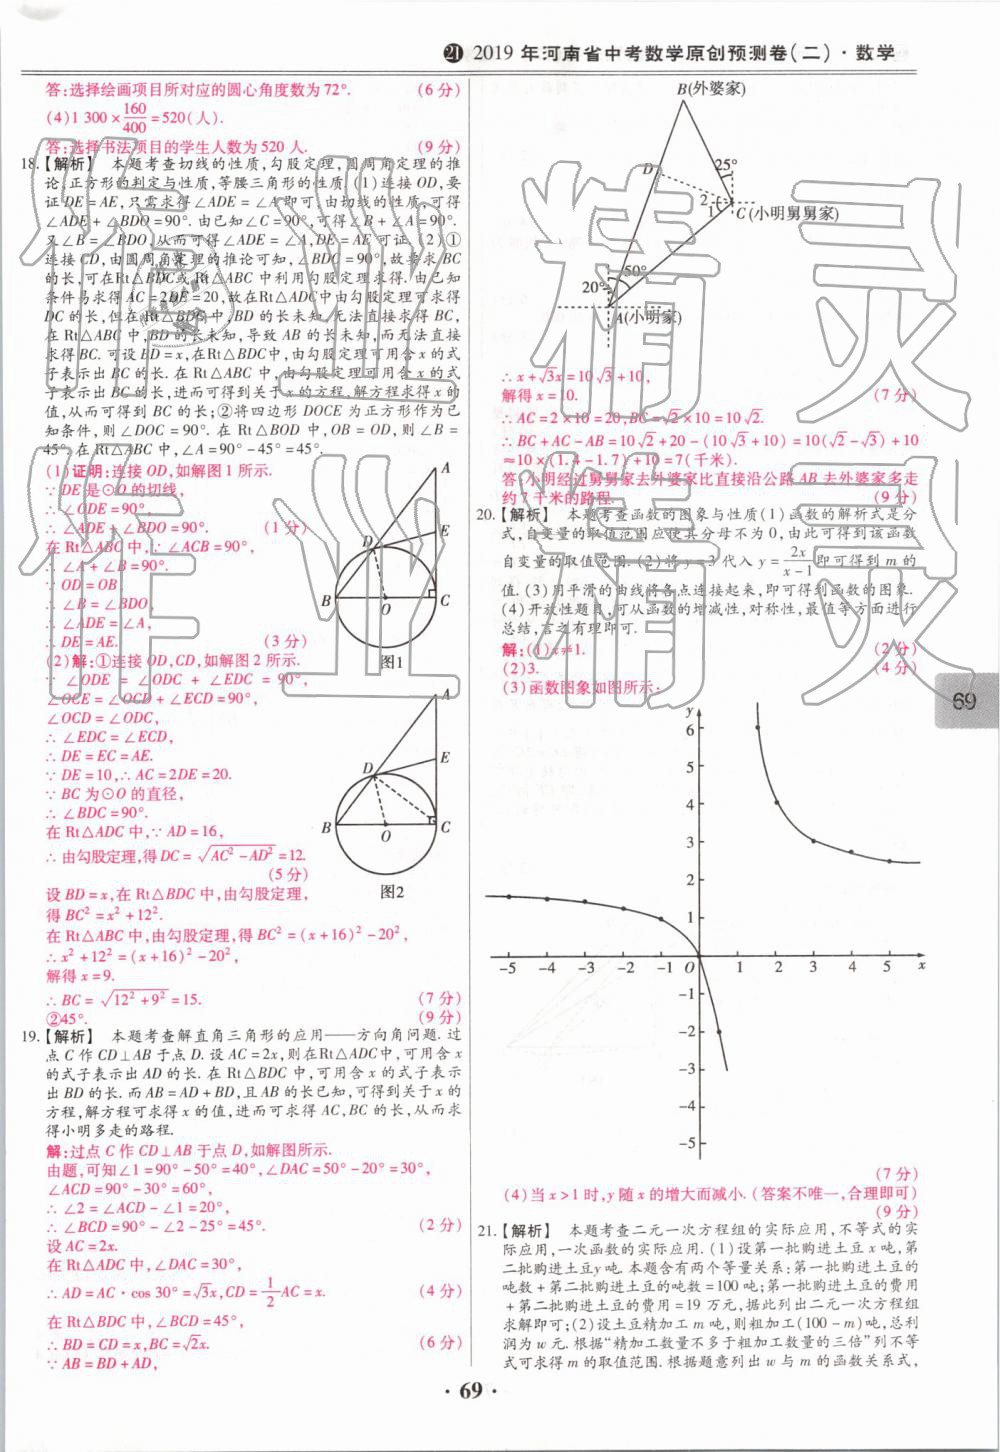 21 2019 年河南省中考数学原创预测卷(二)·数学
答:选择绘画项目所对应的圆心角度数为72°. (6 分)
(4)1 300 × 160/400 = 520(人).
答:选择书法项目的学生人数为 520 人. (9 分)
18.【解析】 本题考查切线的性质,勾股定理,圆周角定理的推
论,正方形的判定与性质,等腰三角形的性质.(1)连接 OD,要
证 DE = AE,只需求得∠ADE = ∠A 即可.由切线的性质,可得
∠ADE + ∠BDO = 90°.由已知∠C = 90°,可得∠B + ∠A = 90°.
又∠B = ∠BDO,从而可得∠ADE = ∠A,DE = AE 可证.(2)①
连接 CD,由圆周角定理的推论可知,∠BDC = 90°,故要求 BC
的长,可在Rt△BDC或 Rt△ABC 中利用勾股定理求得.由已知
条件易求得 AC = 2DE = 20,故在Rt△ADC中由勾股定理可求得
DC 的长,但在Rt△BDC中,BD 的长未知,无法直接求得 BC,
在 Rt△ABC 中,BD 的长未知,导致 AB 的长未知,而无法直接
求得 BC. 可设 BD = x,在Rt△BDC中,由勾股定理可用含 x 的式
子表示出 BC 的长. 在 Rt△ABC 中,由勾股定理可用含 x 的式
子表示出 BC 的长,进而可得到关于 x 的方程,解方程求得 x 的
值,从而可得到 BC 的长;②将四边形 DOCE 为正方形作为已
知条件,则∠DOC = 90°. 在 Rt△BOD 中,OB = OD,则∠B =
45°.在 Rt△ABC 中,∠A = 90° - 45° = 45°.
(1)证明:连接 OD,如解图 1 所示.
∵ DE 是⊙O 的切线,
∴ ∠ODE = 90°,
∴ ∠ADE + ∠BDO = 90°. (1 分)
在 Rt△ABC 中,∵ ∠ACB = 90°,
∴ ∠A + ∠B = 90°.
∵ OD = OB,
∴ ∠B = ∠BDO,
∴ ∠ADE = ∠A,
∴ DE = AE. (3 分)
A
D
E
B
O
C
图1
(2)解:①连接 OD,CD,如解图 2 所示.
∵ ∠ODE = ∠ODC + ∠EDC = 90°,
∠OCE = ∠OCD + ∠ECD = 90°,
∠OCD = ∠ODC,
∴ ∠EDC = ∠ECD,
∴ DE = EC = AE.
∵ DE = 10,∴ AC = 2DE = 20.
∵ BC 为⊙O 的直径,
∴ ∠BDC = 90°.
在 Rt△ADC 中,∵ AD = 16,
∴ 由勾股定理,得 DC = √(AC² - AD²) = 12.
(5 分)
A
D
E
B
O
C
图2
设 BD = x,在 Rt△BDC 中,由勾股定理,
得 BC² = x² + 12².
在 Rt△ABC 中,由勾股定理,得 BC² = (x + 16)² - 20²,
∴ x² + 12² = (x + 16)² - 20²,
解得 x = 9.
∴ BC = √(12² + 9²) = 15. (7 分)
②45°. (9 分)
19.【解析】 本题考查解直角三角形的应用——方向角问题. 过
点 C 作 CD⊥AB 于点 D. 设 AC = 2x,则在Rt△ADC中,可用含 x
的式子表示出 AD 的长. 在 Rt△BDC 中,可用含 x 的式子表示
出 BD 的长. 而 AB = AD + BD,且 AB 的长已知,可得到关于 x 的
方程,解方程可求得 x 的值,进而可求得 AC,BC 的长,从而求
得小明多走的路程.
解:过点 C 作 CD⊥AB 于点 D,如解图所示.
由题,可知∠1 = 90° - 50° = 40°,∠DAC = 50° - 20° = 30°,
∠ACD = 90° - 30° = 60°,
∴ ∠2 = ∠ACD - ∠1 = 20°,
∴ ∠BCD = 90° - ∠2 - 25° = 45°. (2 分)
设 AC = 2x.
在 Rt△ADC 中,∠DAC = 30°,
∴ AD = AC·cos 30° = √3x,CD = 1/2 AC = x. (4 分)
在 Rt△BDC 中,∠BCD = 45°,
∴ BD = CD = x,BC = √2x. (6 分)
∵ AB = BD + AD,
B(外婆家)
D
25°
2
1
C(小明舅舅家)
50°
20°
A(小明家)
∴ x + √3x = 10√3 + 10,
解得 x = 10. (7 分)
∴ AC = 2 × 10 = 20,BC = √2 × 10 = 10√2.
∴ BC + AC - AB = 10√2 + 20 - (10√3 + 10) = 10(√2 - √3) + 10
≈ 10 × (1.4 - 1.7) + 10 = 7(千米).
答:小明经过舅舅家去外婆家比直接沿公路 AB 去外婆家多走
约 7 千米的路程. (9 分)
20.【解析】 本题考查函数的图象与性质(1)函数的解析式是分
式,自变量的取值范围应使其分母不为 0,由此可得到该函数
自变量的取值范围. (2)将 y = 3 代入 y = 2x/(x - 1) 即可得到 m 的
值. (3)用平滑的曲线将各点连接起来,即可得到函数的图象.
(4)开放性题目,可从函数的增减性,对称性,最值等方面进行
总结,言之有理即可.
解:(1)x≠1. (2 分)
(2)3. (4 分)
(3)函数图象如图所示:
y
6
5
4
3
2
1
-5 -4 -3 -2 -1 O 1 2 3 4 5 x
-1
-2
-3
-4
-5
(7 分)
(4)当 x > 1 时,y 随 x 的增大而减小. (答案不唯一,合理即可)
(9 分)
21.【解析】 本题考查二元一次方程组的实际应用,不等式的实
际应用,一次函数的实际应用. (1)设第一批购进土豆 x 吨,第
二批购进土豆y 吨. 本题含有两个等量关系:第一批购进土豆的
吨数 + 第二批购进土豆的吨数 = 100 吨;第一批购进土豆的费用
+ 第二批购进土豆的费用 = 19 万元,据此列出二元一次方程组
求解即可;(2)设土豆精加工 m 吨,则粗加工(100 - m)吨,总利
润为 w 元. 根据“精加工数量不多于粗加工数量的三倍”列不等
式可求得 m 的取值范围. 根据题意列出 w 与 m 的函数关系式,
69
· 69 ·
作业精灵
作业精灵